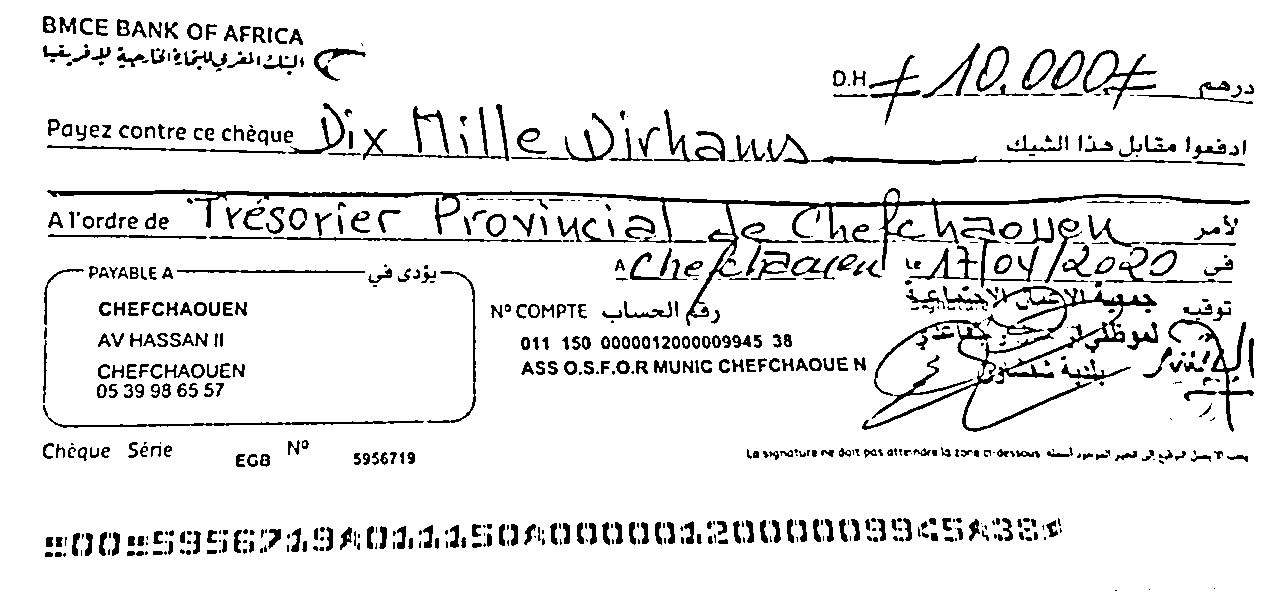 BMCE BANK OF AFRICA
البنك المغربي للتجارة الخارجية لإفريقيا
D.H ≠ 10.000 ≠ درهم
Payez contre ce chèque Dix Mille Dirhams ادفعوا مقابل هذا الشيك
A l'ordre de Trésorier Provincial de Chefchaouen لأمر
A Chefchaouen le 17/04/2020 في
PAYABLE A يؤدى في
CHEFCHAOUEN
AV HASSAN II
CHEFCHAOUEN
05 39 98 65 57
N° COMPTE رقم الحساب
011 150 0000012000009945 38
ASS O.S.F.O.R MUNIC CHEFCHAOUE N
Signature توقيع
جمعية الأعمال الاجتماعية
لموظفي
بلدية شفشاون
Chèque Série EGB N° 5956719
La signature ne doit pas atteindre la zone ci-dessous
⑈00⑈5956719A011150A0000012000009945A38⑈